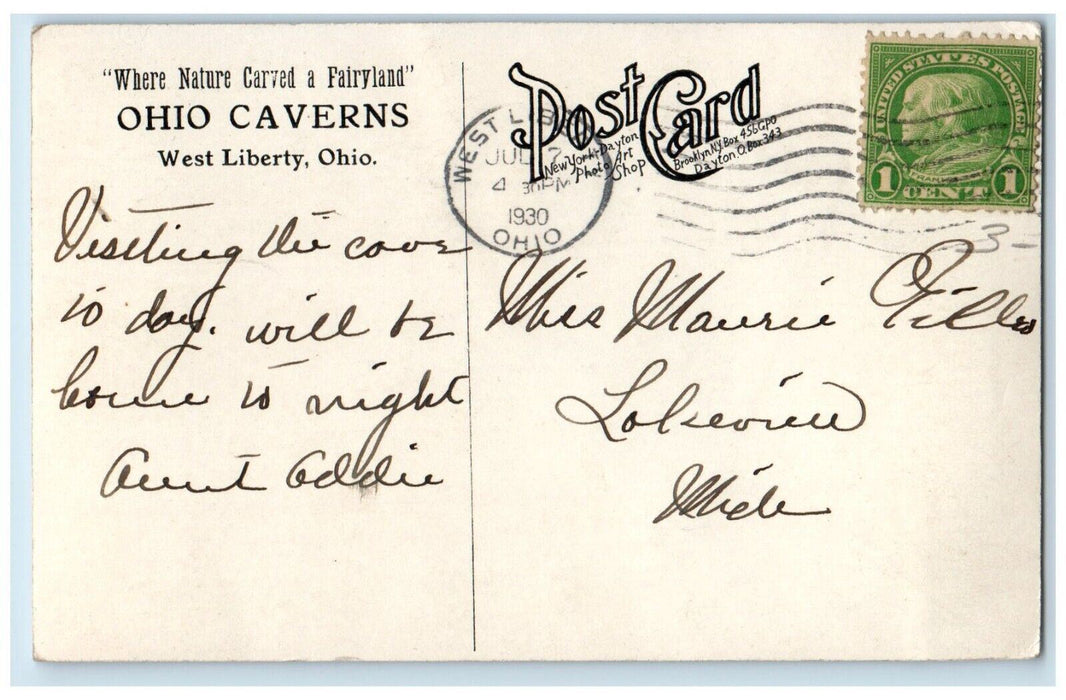 "Where Nature Carved a Fairyland"
OHIO CAVERNS
West Liberty, Ohio.
Post Card
New York-Dayton
Photo Art
Shop
Brooklyn, N.Y. Box 456 GPO
Dayton, O. Box 343
WEST LIB
JUL 7
4 30 PM
1930
OHIO
UNITED STATES POSTAGE
1 CENT 1
3-
Visiting the cave
to day. will be
home to night
Aunt Addie
Miss Maurie
Lakeview
Mich